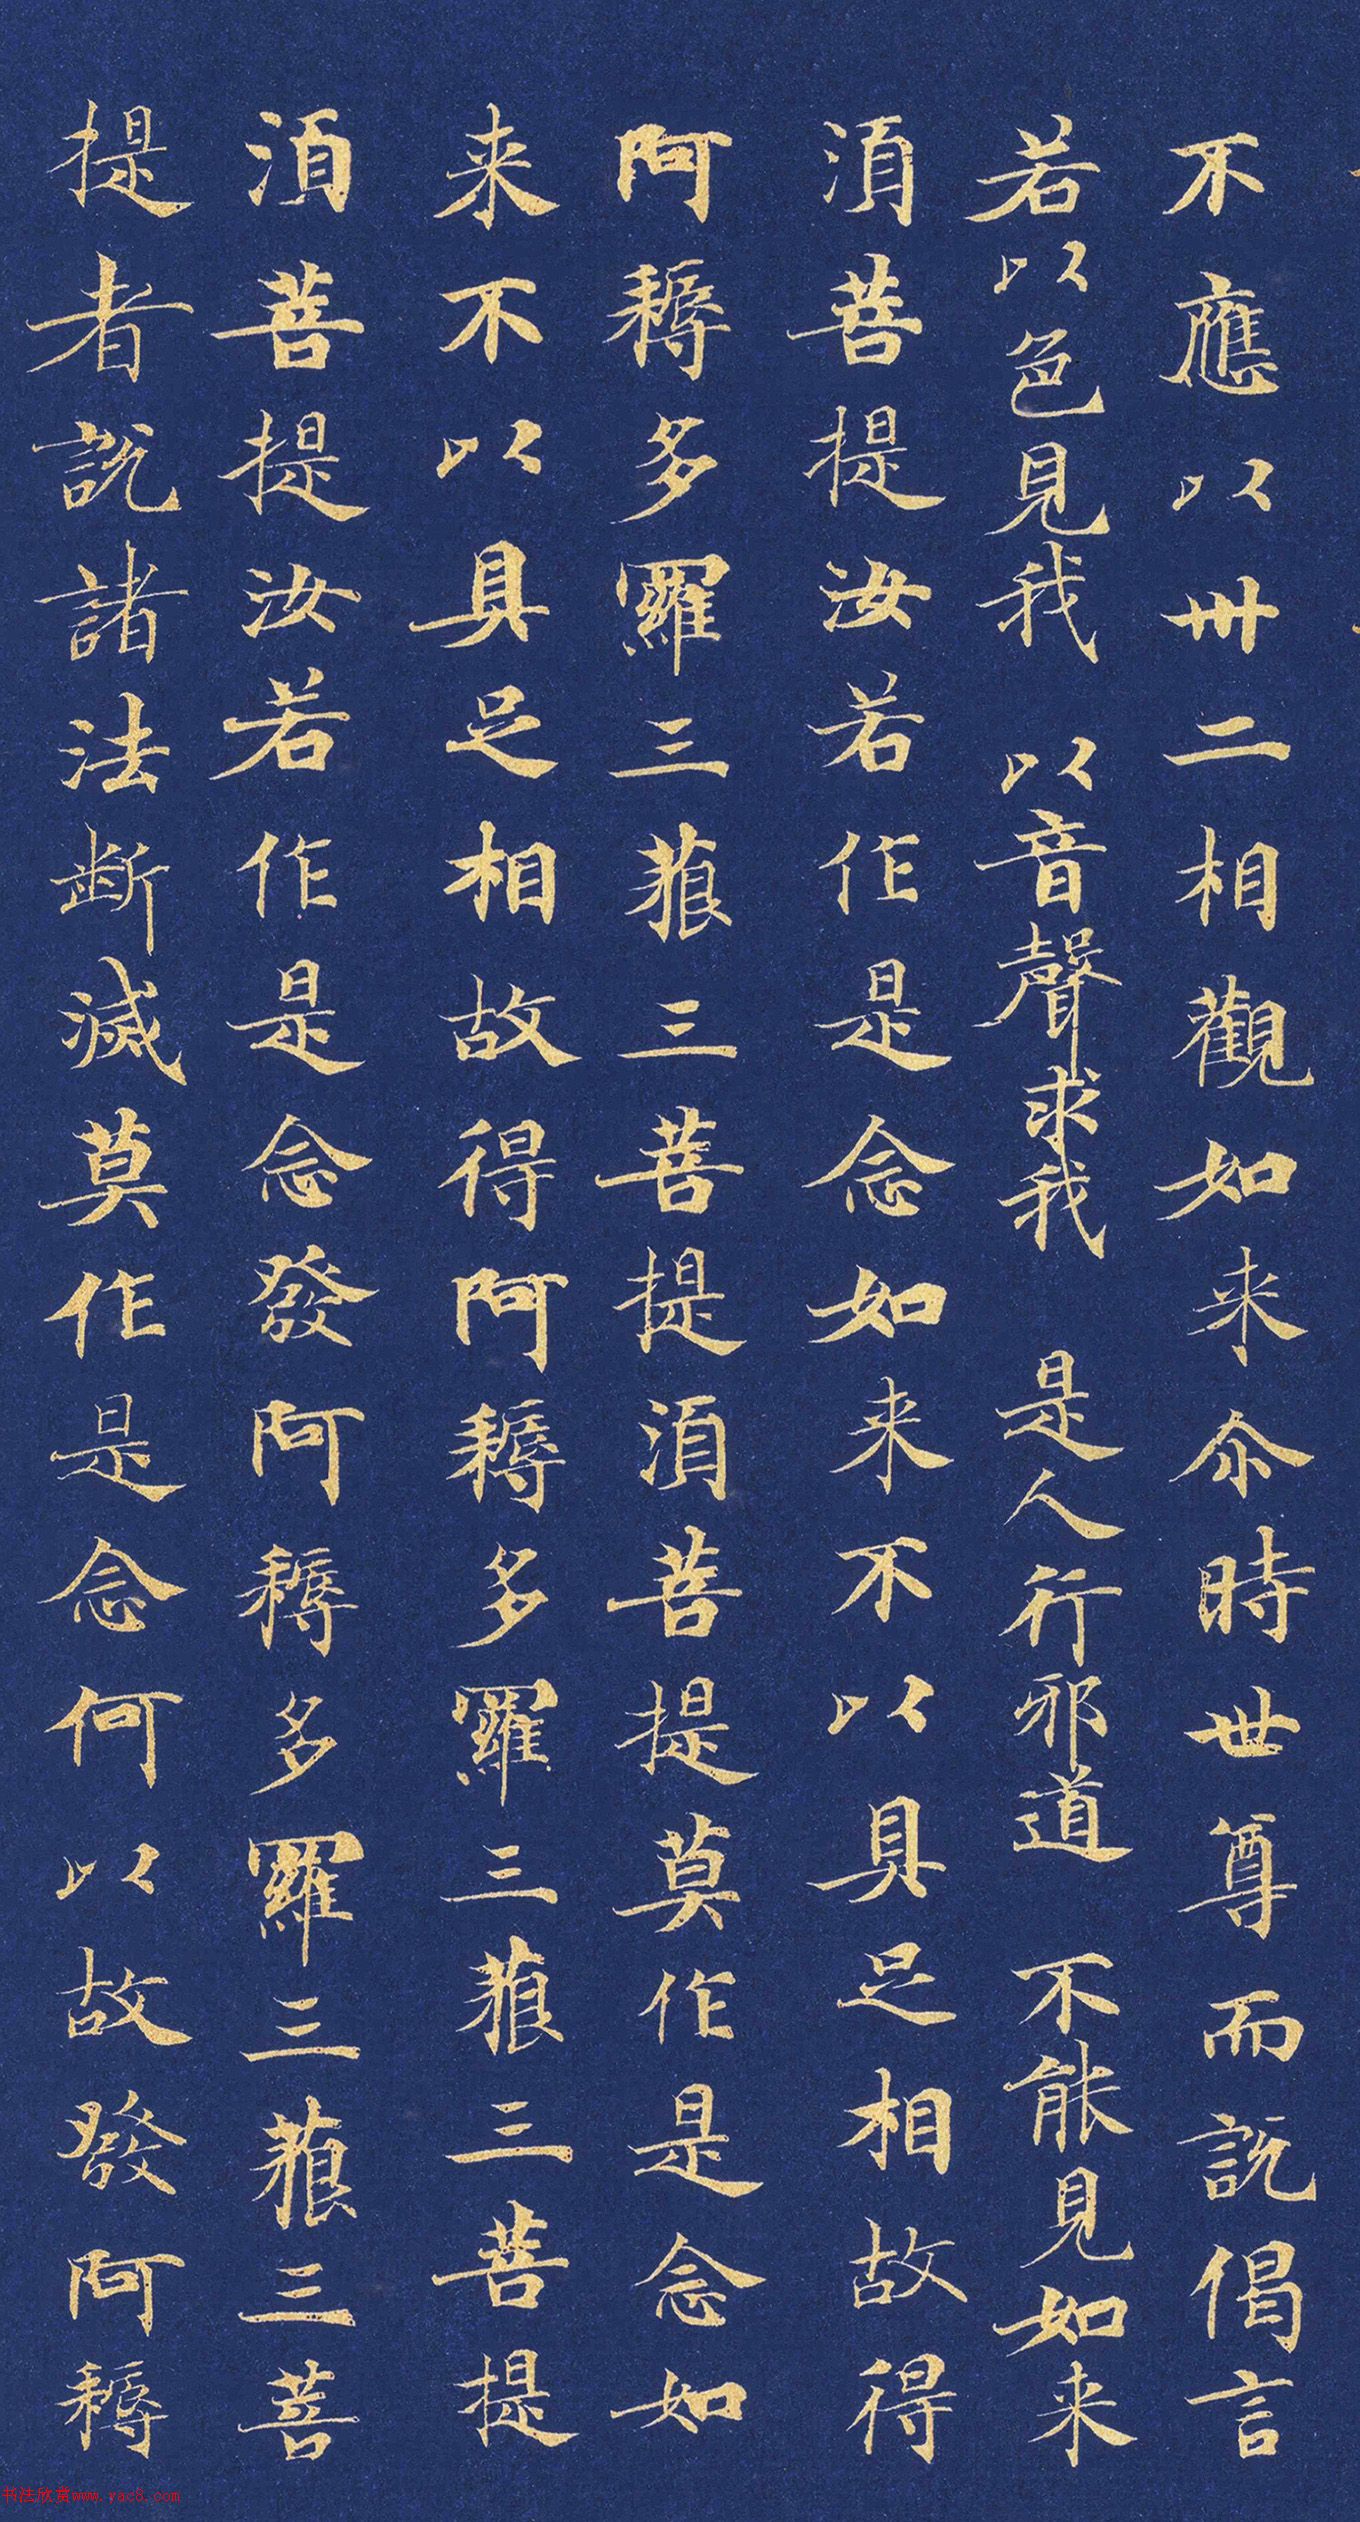 不應以卅二相觀如来尒時世尊而説偈言
若以色見我 以音聲求我 是人行邪道 不能見如来
湏菩提汝若作是念如来不以具足相故得
阿耨多羅三藐三菩提湏菩提莫作是念如
来不以具足相故得阿耨多羅三藐三菩提
湏菩提汝若作是念發阿耨多羅三藐三菩
提者説諸法断滅莫作是念何以故發阿耨
书法欣赏www.yac8.com